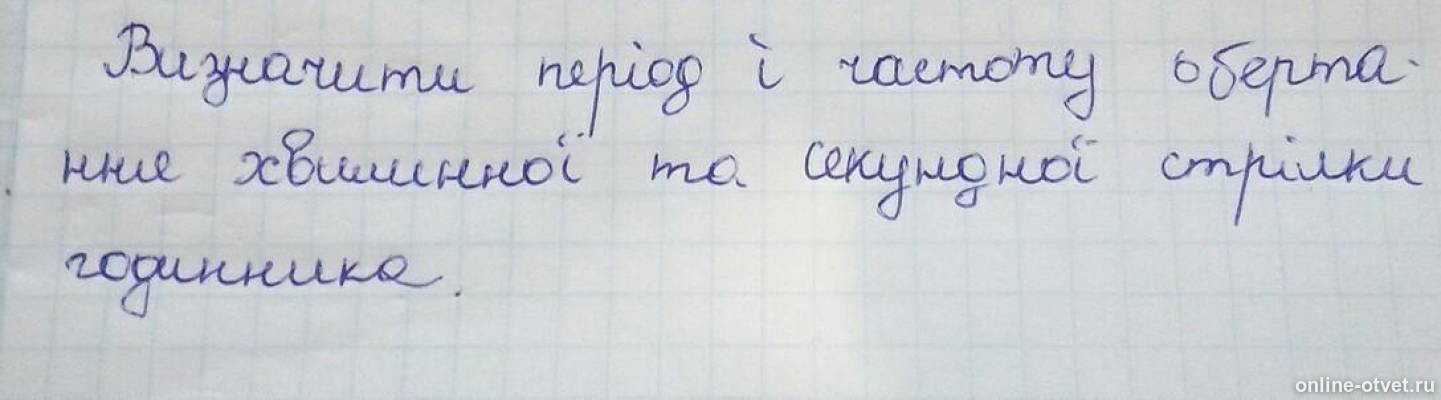 Визначити період і частоту оберта-
ння хвилинної та секундної стрілки
годинника.
online-otvet.ru